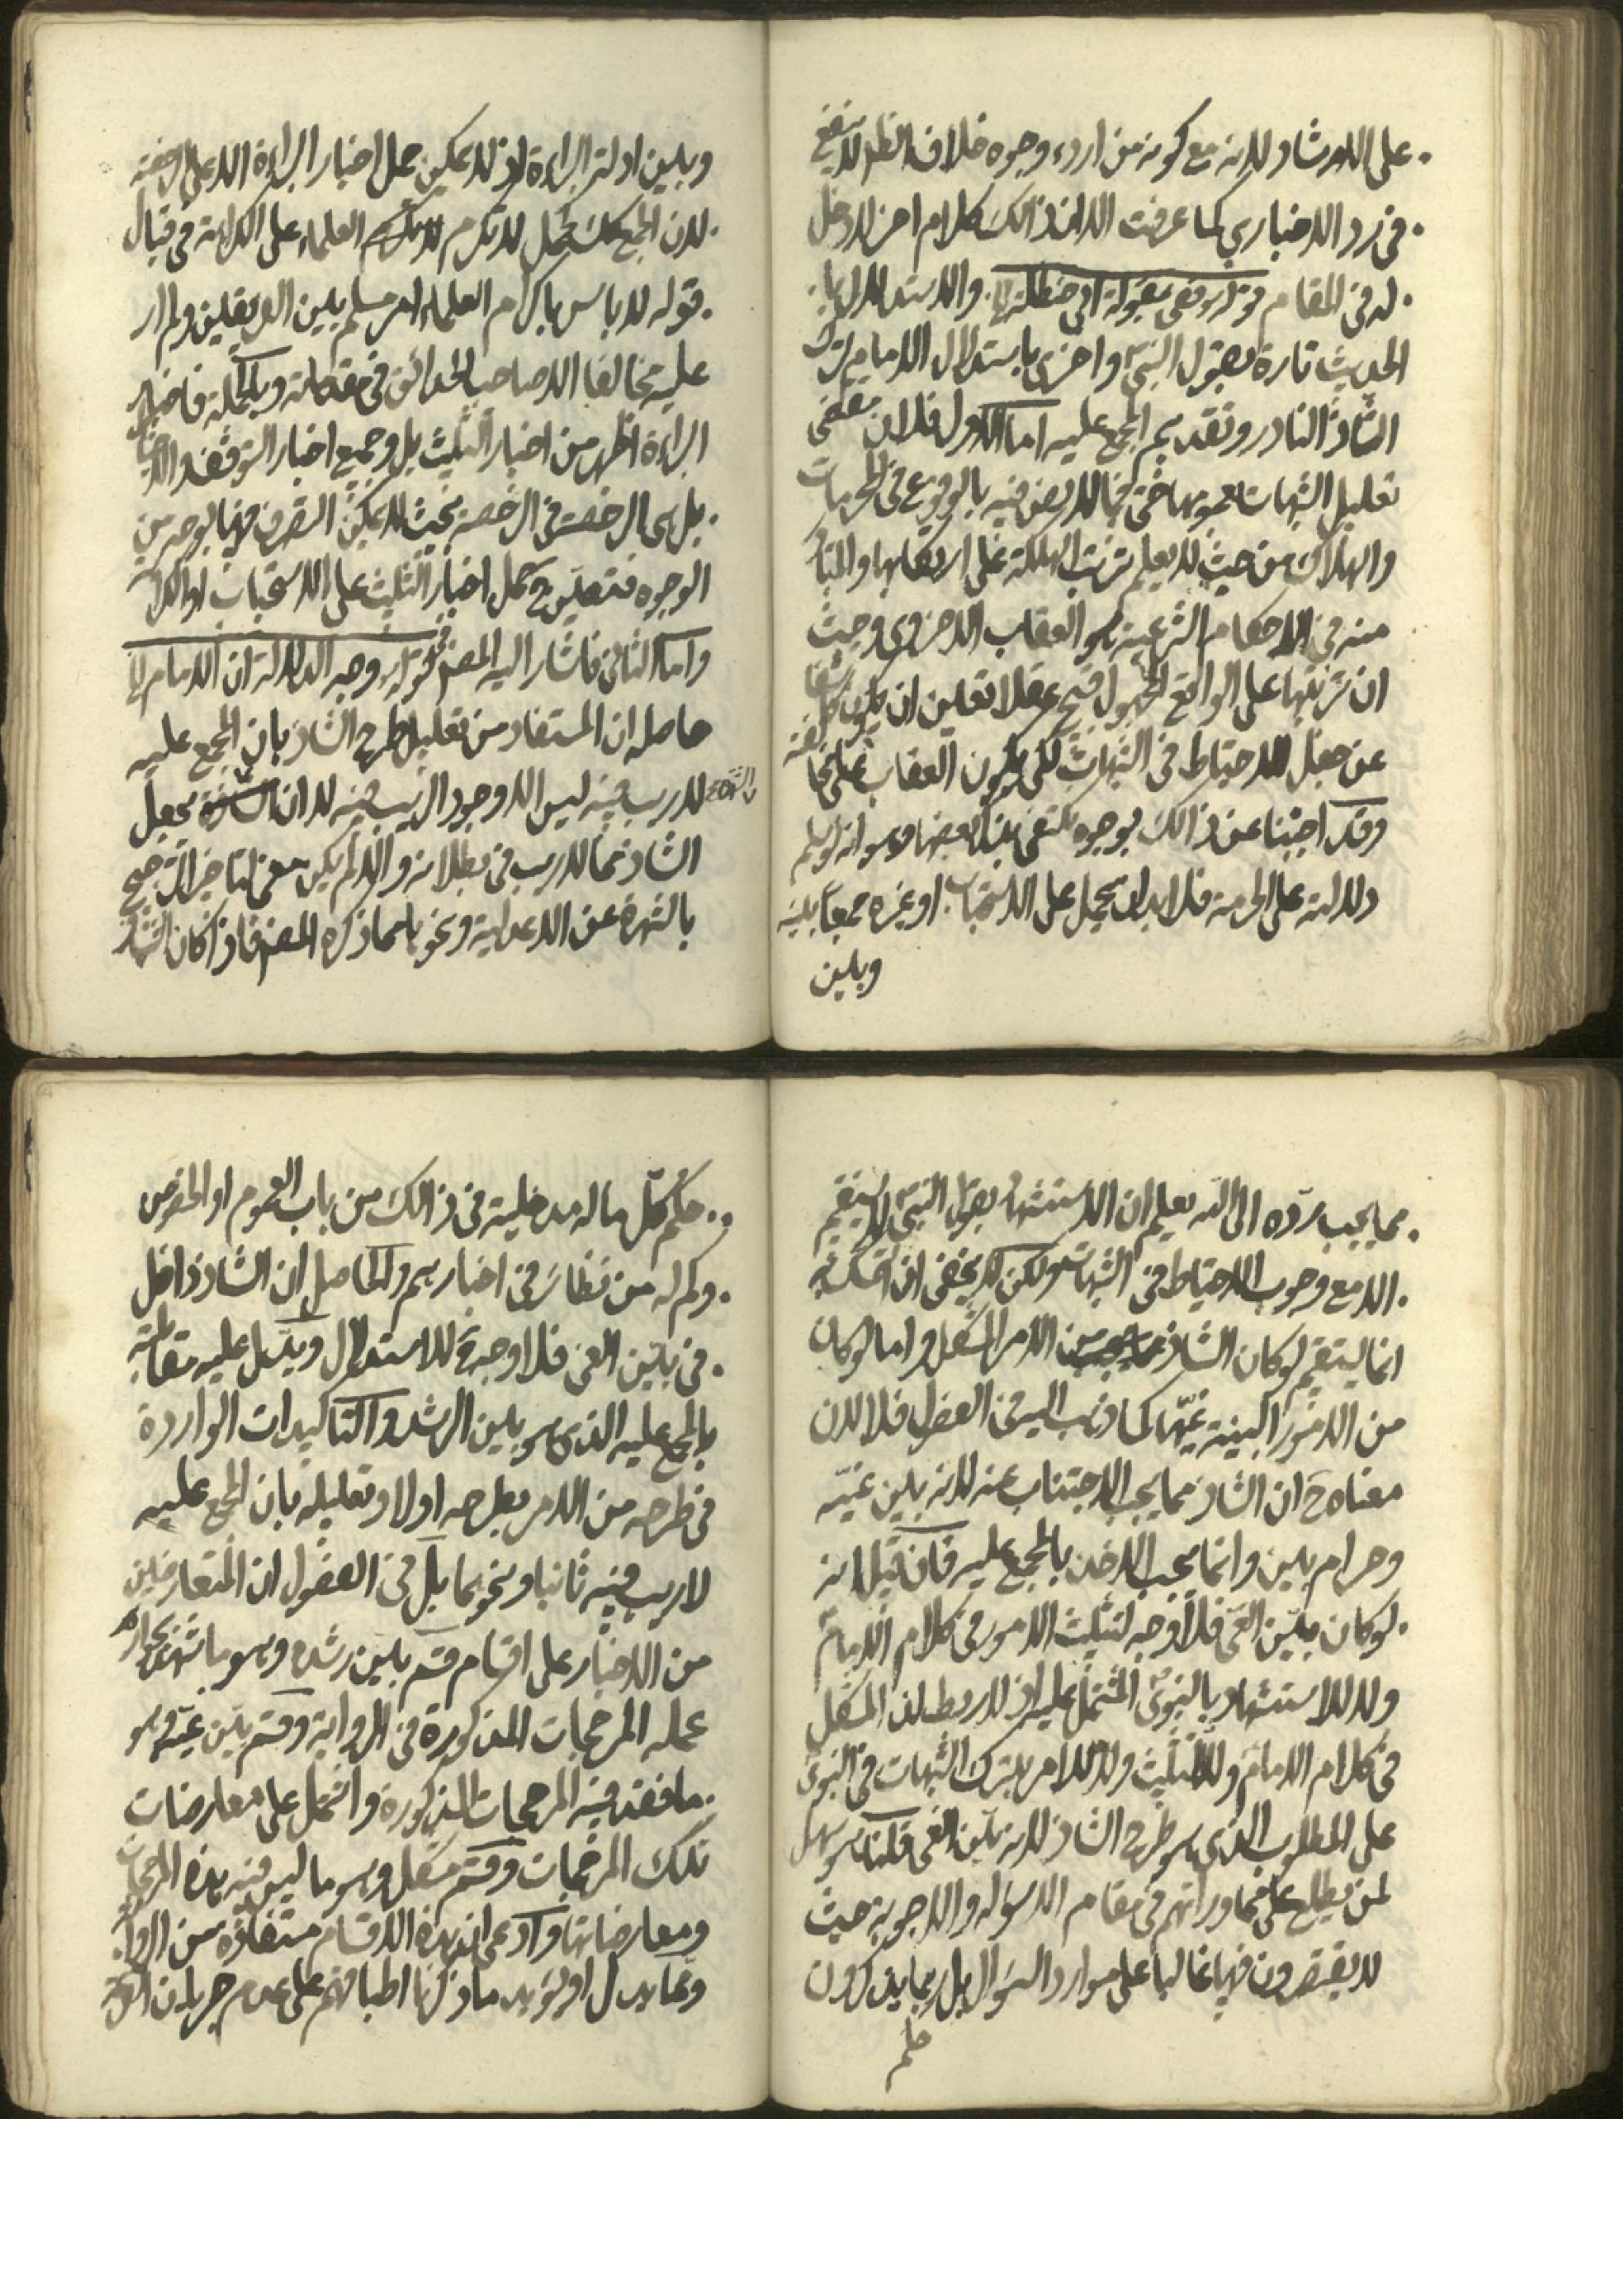 على الارشاد لانه مع كونه من اردء وجوه خلاف الظم لا ينفع
في رد الاخباري كما عرفت الا ان ذالك كلام اخر لا دخل
له في المقام قوله وفي مقبولة ابن حنظلة الخ والاستدلال بها
الحديث تارة بقول النبي واخرى باستدلال الامام لترك
الشاذ النادر وتقديم المجمع عليه اما الاول فلان مقتضى
تعليل الشبهات بعمومها حتى فيما لا نص فيه بالوقوع في المحرمات
والهلاك من حيث لا يعلم ترتب الهلكة على ارتكابها والمتبادر
منه في الاحكام الشرعية هو العقاب الاخروي وحيث
ان ترتبها على الواقع المجهول قبيح عقلا تعين ان يكون كاشفا
عن جعل الاحتياط في الشبهات لكي يكون العقاب على مخالفته
وقد اجبنا عن ذالك بوجوه نكتفي بذكر بعضها وهو انه لو سلم
دلالته على الحرمة فلا بد ان يحمل على الاستحباب او غيره جمعا بينه
وبين
وبين ادلة البراءة اذ لا يمكن حمل اخبار البراءة الا على الرخصة
لان الجمع كك كحمل لا تكرم العلماء على الكراهة في قبال
قوله لا باس باكرام العلماء امر مسلم بين الفريقين ولم ار
عليه مخالفا الا صاحب الحدائق في مقدماته وبالجملة فاخبار
البراءة اظهر من اخبار التثليث بل وجميع اخبار التوقف والاحتياط
بل هي الرخصة في الرخصة بحيث لا يمكن التصرف فيها بوجه من
الوجوه فتعين ح حمل اخبار التثليث على الاستحباب او الكراهة
واما الثاني فاشار اليه المصنف في قوله وجه الدلالة ان الامام الخ
حاصله ان المستفاد من تعليل طرح الشاذ بان المجمع عليه
لا ريب فيه ليس الا وجود الريب فيه لا ان الشهرة يجعل
الشاذ مما لا ريب في بطلانه والا لم يكن معنى لتاخير الترجيح
بالشهرة عن الاعدلية ونحوها مما ذكره المصنف فاذا كان الشاذ
مما يجب رده الى الله يعلم ان الاستشهاد بقول النبي لا يستقيم
الا مع وجوب الاحتياط في الشبهات ولكن لا يخفى ان التمسك به
انما يستقيم لو كان الشاذ من الامر المشكل واما لو كان
من الامور البينة غيها كما ذهب اليه في الفصول فلا لان
معناه ح ان الشاذ مما يجب الاجتناب عنه لانه بين غيه
وحرام بين وانما يجب الاخذ بالمجمع عليه فان قيل انه
لو كان بين الغي فلا وجه لتثليث الامور في كلام الامام
ولا للاستشهاد بالنبوي المشتمل عليه اذ لا ربط لذا المشكل
في كلام الامام وللتثليث ولا للامر بترك الشبهات في النبوي
على المطلوب الذي هو طرح الشاذ لانه بين الغي قلنا هو سهل
لمن يطلع على محاوراتهم في مقام الاسولة والاجوبة حيث
لا يقتصرون فيها غالبا على موارد السؤال بل ربما يذكرون
حكم
حكم كل ما له مدخلية في ذالك من باب العموم او الخصوص
وكم له من نظائر في اخبارهم والحاصل ان الشاذ داخل
في بين الغي فلا وجه ح للاستدلال ويدل عليه مقابلته
بالمجمع عليه الذي هو بين الرشد والتاكيدات الواردة
في طرحه من الامر بطرحه اولا وتعليله بان المجمع عليه
لا ريب فيه ثانيا ونحوهما بل في الفصول ان المتعارضين
من الاخبار على اقسام قسم بين رشده وهو ما اشتهر بجواز
عمله المرجحات المذكورة في الرواية وقسم بين غيه وهو
ما فقد فيه المرجحات المذكورة واشتمل على معارضات
تلك المرجحات وقسم مشكل وهو ما ليس فيه هذه المرجحات
ومعارضاتها وادعى ان هذه الاقسام مستفادة من الرواية
ومما يدل او يؤيد ما ذكرنا اطباقهم على عدم جريان